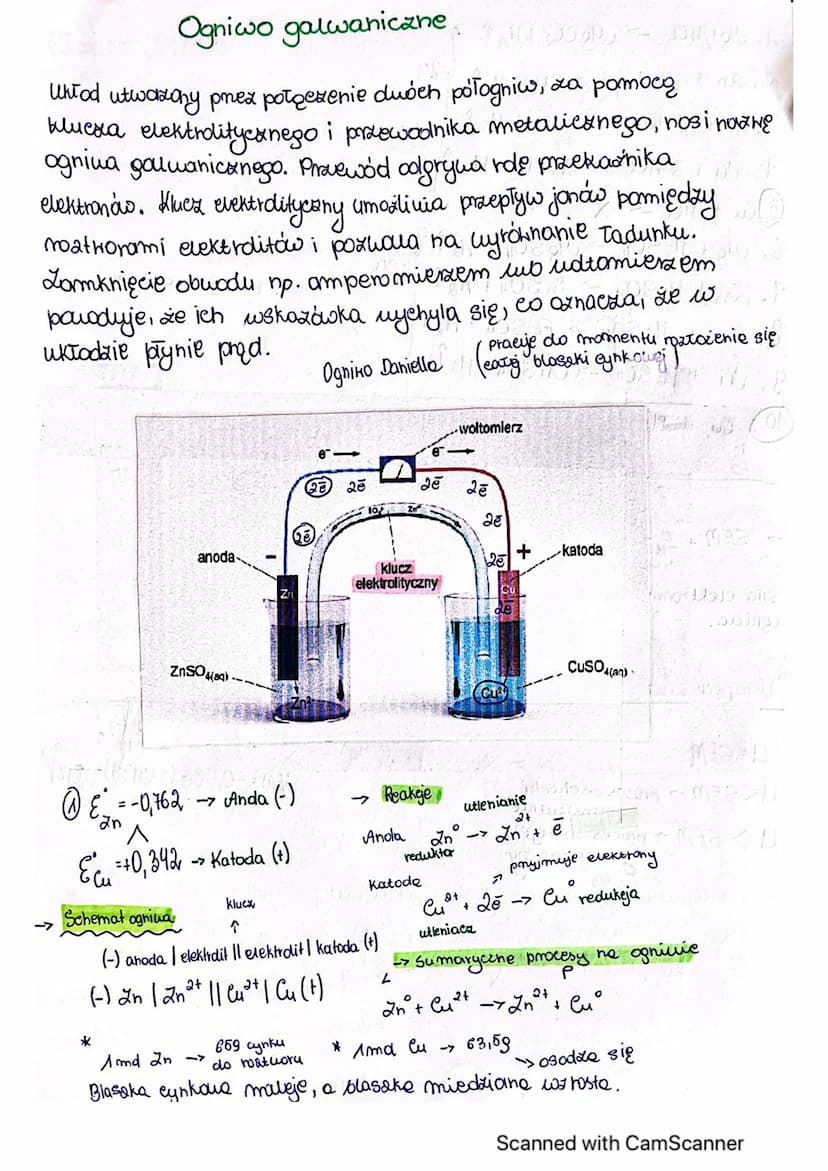 Ogniwo galwaniczne
Układ utworzony przez połączenie dwóch półogniw, za pomocą
klucza elektrolitycznego i przewodnika metalicznego, nosi nazwę
ogniwa galwanicznego. Przewód odgrywa rolę przekaźnika
elektronów. Klucz elektrolityczny umożliwia przepływ jonów pomiędzy
roztworami elektrolitów i pozwala na wyrównanie ładunku.
Zamknięcie obwodu np. amperomierzem lub woltomierzem
powoduje, że ich wskazówka wychyla się, co oznacza, że w
układzie płynie prąd.
Ogniwo Daniella (pracuje do momentu roztworzenie się
całej blaszki cynkowej)
woltomierz
e⁻ → e⁻ →
2ē 2ē 2ē 2ē
Zn²⁺
2ē 2ē
anoda - 2ē + katoda
klucz
elektrolityczny
Zn Cu
2ē
ZnSO₄(aq) CuSO₄(aq)
Zn²⁺ Cu²⁺
① Ɛ°Zn = -0,762 → Anda (-)
Λ
Ɛ°Cu = +0,342 → Katoda (+)
→ Reakcje
utlenianie
Anda Zn⁰ → Zn²⁺ + ē
reduktor
przyjmuje elektrony
Katode
Cu²⁺ + 2ē → Cu⁰ redukcja
utleniacz
→ Schemat ogniwa
klucz
↑
(-) anoda | elektrolit || elektrolit | katoda (+)
(-) Zn | Zn²⁺ || Cu²⁺ | Cu (+)
→ Sumaryczne procesy na ogniwie
Zn⁰ + Cu²⁺ → Zn²⁺ + Cu⁰
* 1mol Zn → 65g cynku
do roztworu
* 1mol Cu → 63,5g
→ osadza się
Blaszka cynkowa maleje, a blaszka miedziana wzrosta.
Scanned with CamScanner